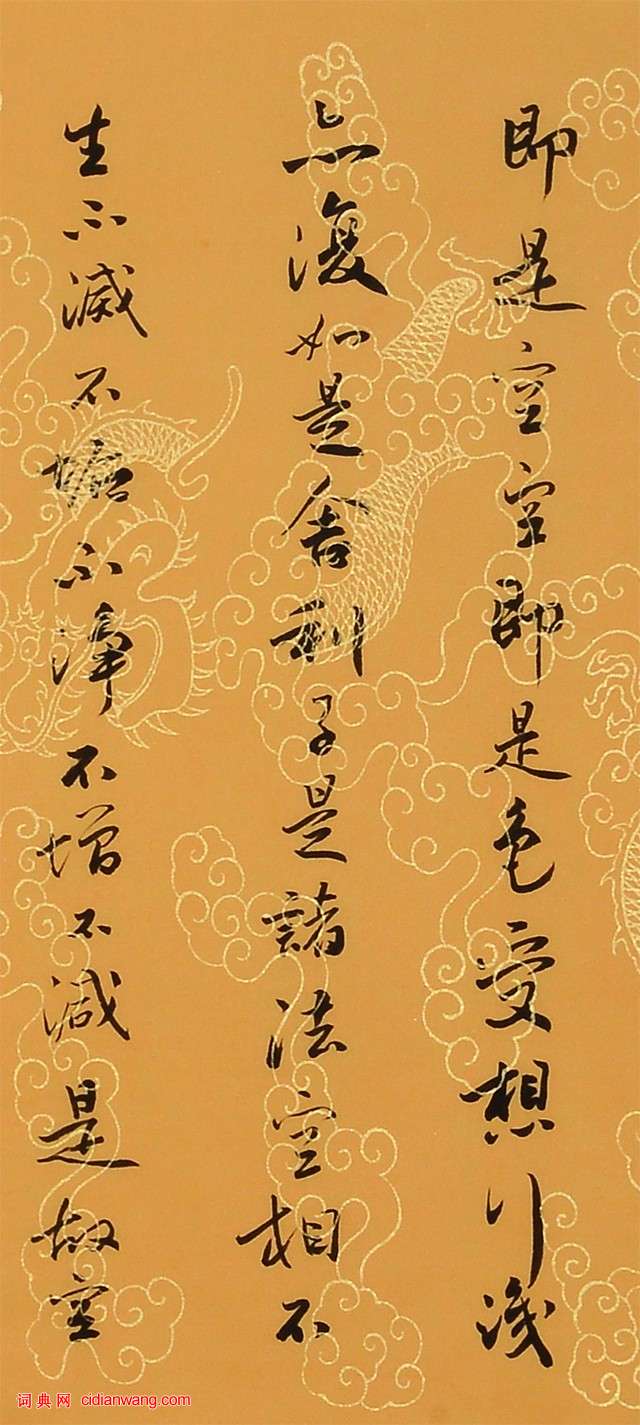 即是空空即是色受想行識
亦復如是舍利子是諸法空相不
生不滅不垢不淨不增不減是故空
词典网 cidianwang.com